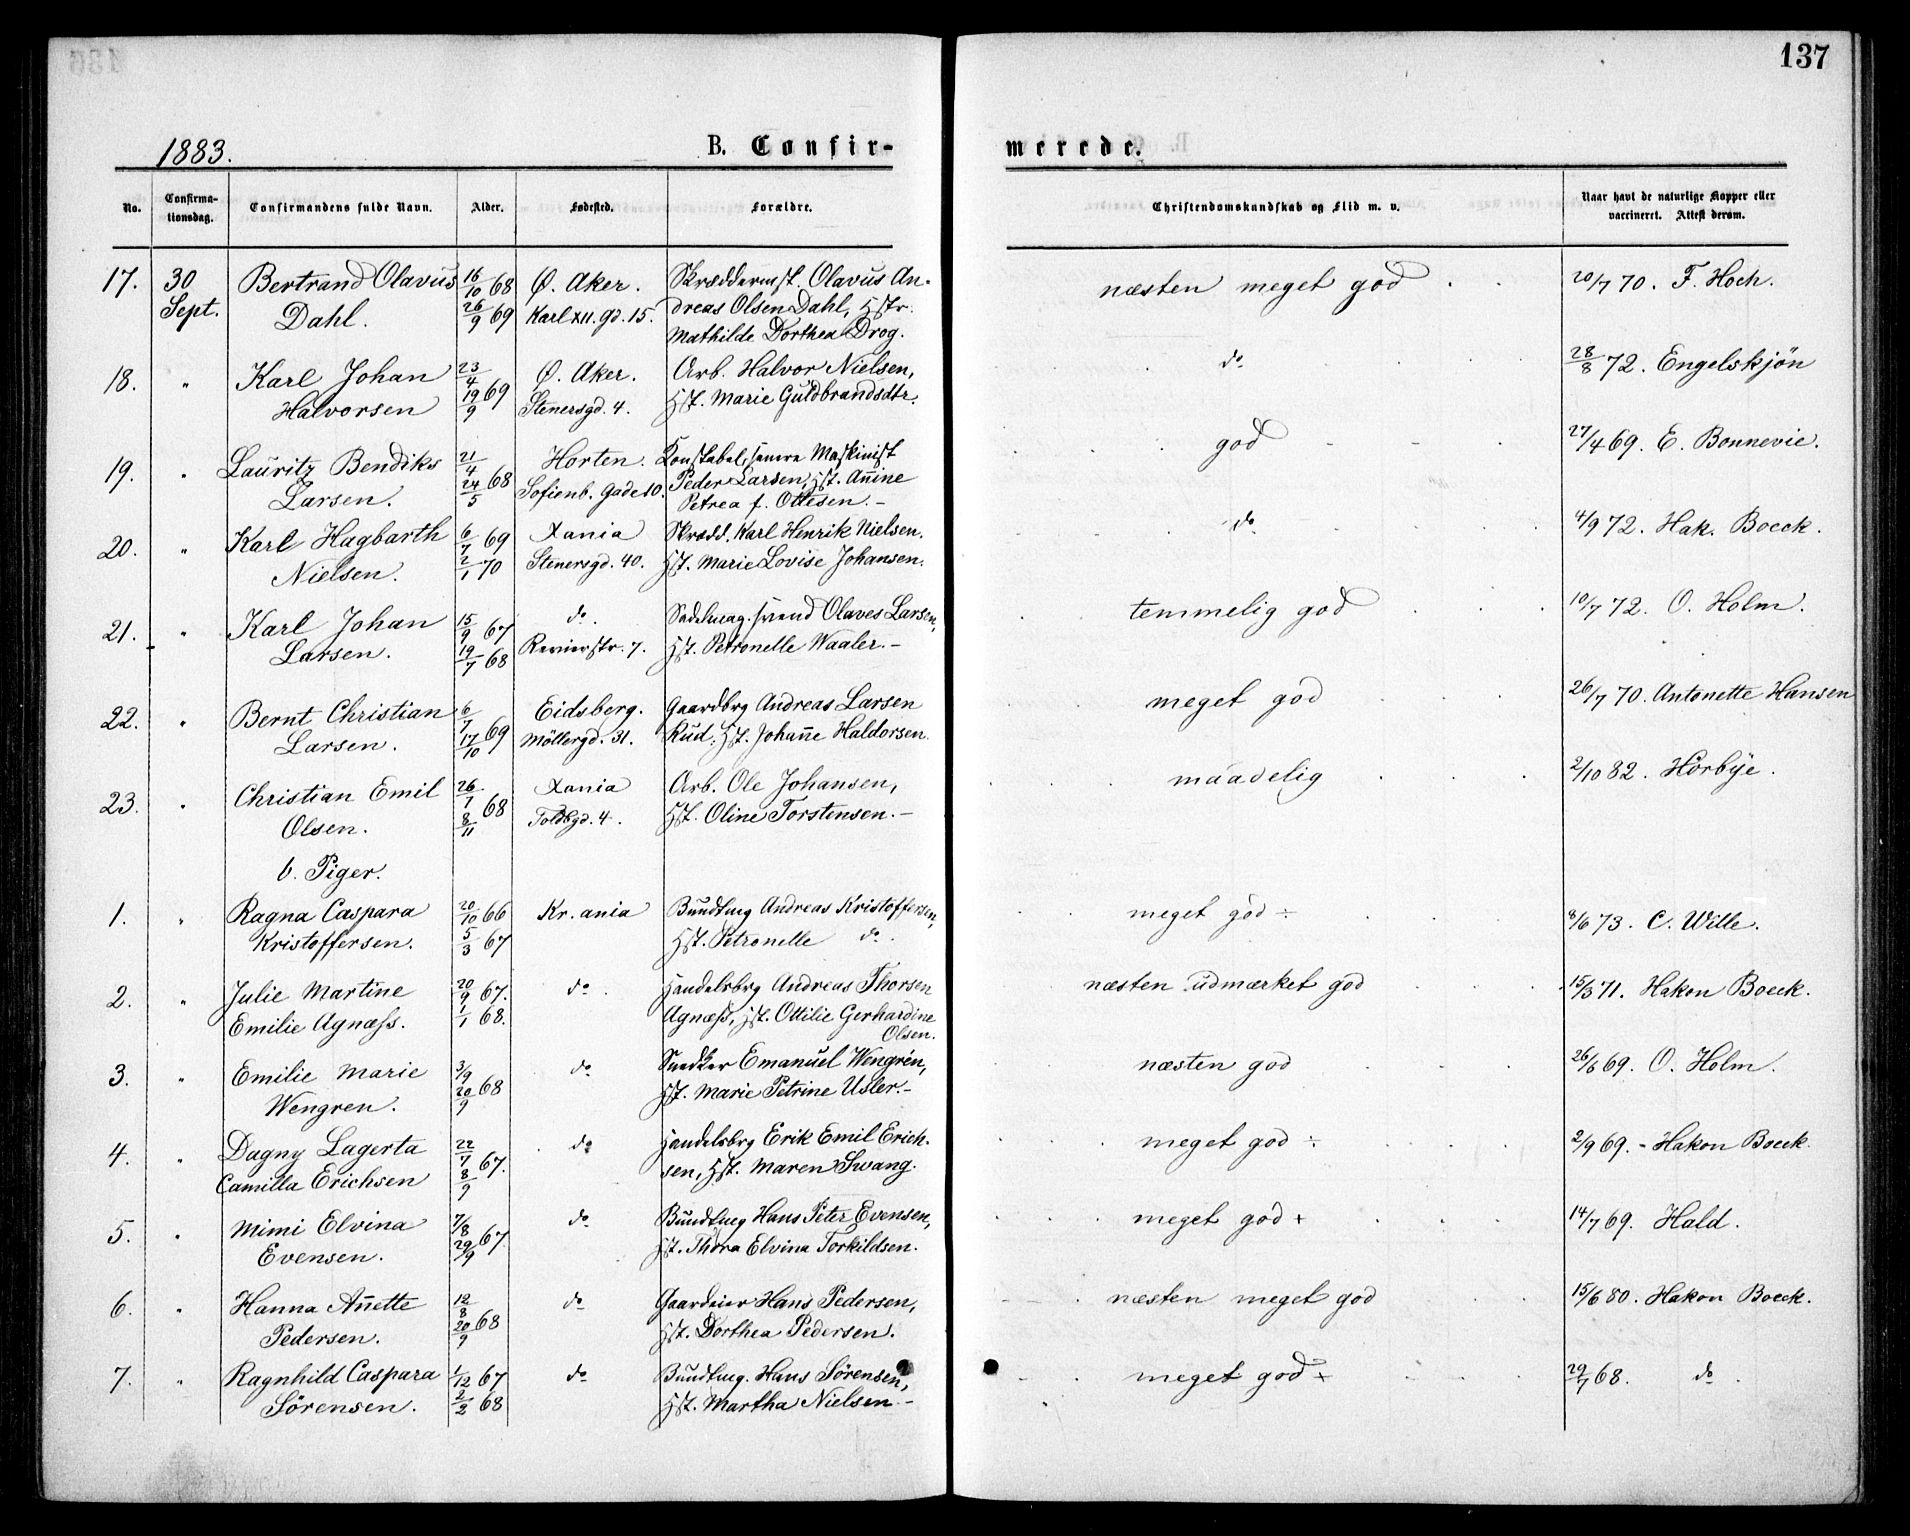 137
1883.
B. Confir-
merede.
No.
Confirma-
tionsdag.
Confirmandens fulde Navn.
Alder.
Fødested.
Forældre.
Christendomskundskab og Flid m. v.
Naar havt de naturlige Kopper eller
vaccineret. Attest derom.
17. 30 Bertrand Olavus 16/10 68 Ø. Aker. Skræddermst. Olavus An- næsten meget god 20/7 70. F. Hoch.
Sept. Dahl. 26/9 69 Karl XII. gd. 15. dreas Olsen Dahl, Hstr.
Mathilde Dorthea Drog.
18. " Karl Johan 23/4 69 Ø. Aker. Arb. Halvor Nielsen, do 28/8 72. Engelskjön
Halvorsen 19/9 Stenersgd. 4. Hst. Marie Guldbrandsdtr.
19. " Lauritz Bendiks 21/4 68 Horten. Konstabel, senere Maskinist god 27/4 69. E. Bonnevie.
Larsen. 24/5 Sofienb. Gade 10. Peder Larsen, Hst. Anine
Petrea f. Ottesen. -
20. " Karl Hagbarth 6/7 69 Xania Skrædd. Karl Henrik Nielsen. do 4/9 72. Hak. Boeck.
Nielsen. 2/1 70 Stenersgd. 40. Hst. Marie Lovise Johansen.
21. " Karl Johan 15/9 67 do. Sadelmag. svend Olaves Larsen, temmelig god 10/7 72. O. Holm.
Larsen. 19/7 68 Revierstr. 7. Hst. Petronelle Waaler. -
22. " Bernt Christian 6/7 69 Eidsberg. Gaardbrg Andreas Larsen meget god 26/7 70. Antonette Hansen
Larsen. 17/10 Möllergd. 31. Rud. Hst. Johanne Haldorsen.
23. " Christian Emil 26/7 68 Xania Arb. Ole Johansen, maadelig 2/10 82. Hörbye.
Olsen. 8/11 Toldbgd. 4. Hst. Oline Torstensen. -
b. Piger.
1. " Ragna Caspara 20/10 66 Kr.ania Bundtmg Andreas Kristoffersen, meget god ÷ 8/6 73. C. Wille.
Kristoffersen. 5/3 67 Hst. Petronelle do.
2. " Julie Martine 20/9 67. do. Handelsbrg Andreas Thorsen næsten udmærket god 15/3 71. Hakon Boeck.
Emilie Agnæss. 1/1 68. Agnæss, Hst. Ottilie Gerhardine
Olsen.
3. " Emilie Marie 3/9 68 do Snedker Emanuel Wengrén, næsten god 26/6 69. O. Holm.
Wengren. 20/9 Hst. Marie Petrine Usler. -
4. " Dagny Lagerta 22/7 67. do Handelsbrg Erik Emil Erich- meget god ÷ 2/9 69. - Hakon Boeck.
Camilla Erichsen 8/9 sen, Hst. Maren Swang.
5. " Mimi Elvina 7/8 67 do Bundtmg Hans Peter Evensen, meget god + 14/7 69. Hald.
Evensen. 29/9 Hst. Thora Elvina Torkildsen.
6. " Hanna Anette 12/8 68 do Gaardeier Hans Pedersen, næsten meget god 15/6 80. Hakon Boeck.
Pedersen. 20/9 Hst. Dorthea Pedersen.
7. " Ragnhild Caspara 1/12 67 do Bundtmg. Hans Sörensen, meget god + 29/7 68. do.
Sörensen. 2/2 68 Hst. Martha Nielsen. -